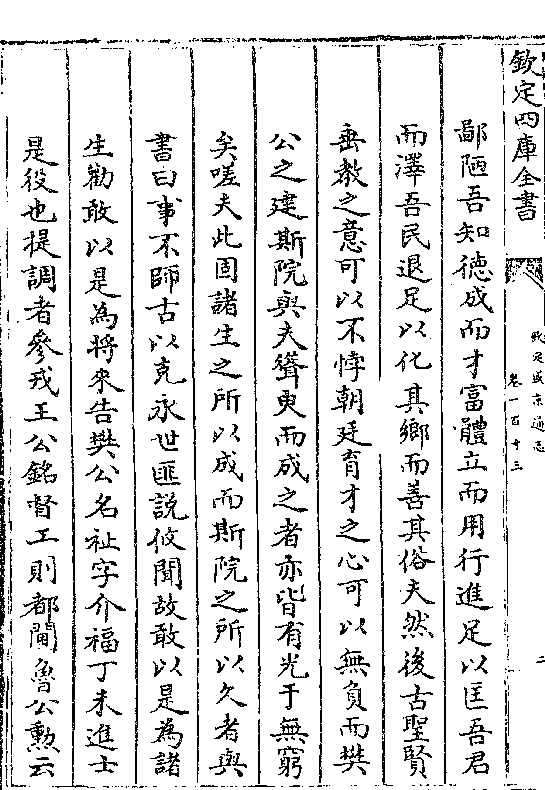 欽定四庫全書
欽定盛京通志
卷一百十三
二
鄙陋吾知徳成而才富體立而用行進足以匡吾君
而澤吾民退足以化其鄉而善其俗夫然後古聖賢
垂教之意可以不悖朝廷育才之心可以無負而樊
公之建斯院與夫聳㕝而成之者亦皆有光于無窮
矣嗟夫此固諸生之所以成而斯院之所以久者與
書曰事不師古以克永世匪説攸聞故敢以是為諸
生勸敢以是為將來告樊公名祉字介福丁未進士
是役也提調者參戎王公銘督工則都閫魯公勲云